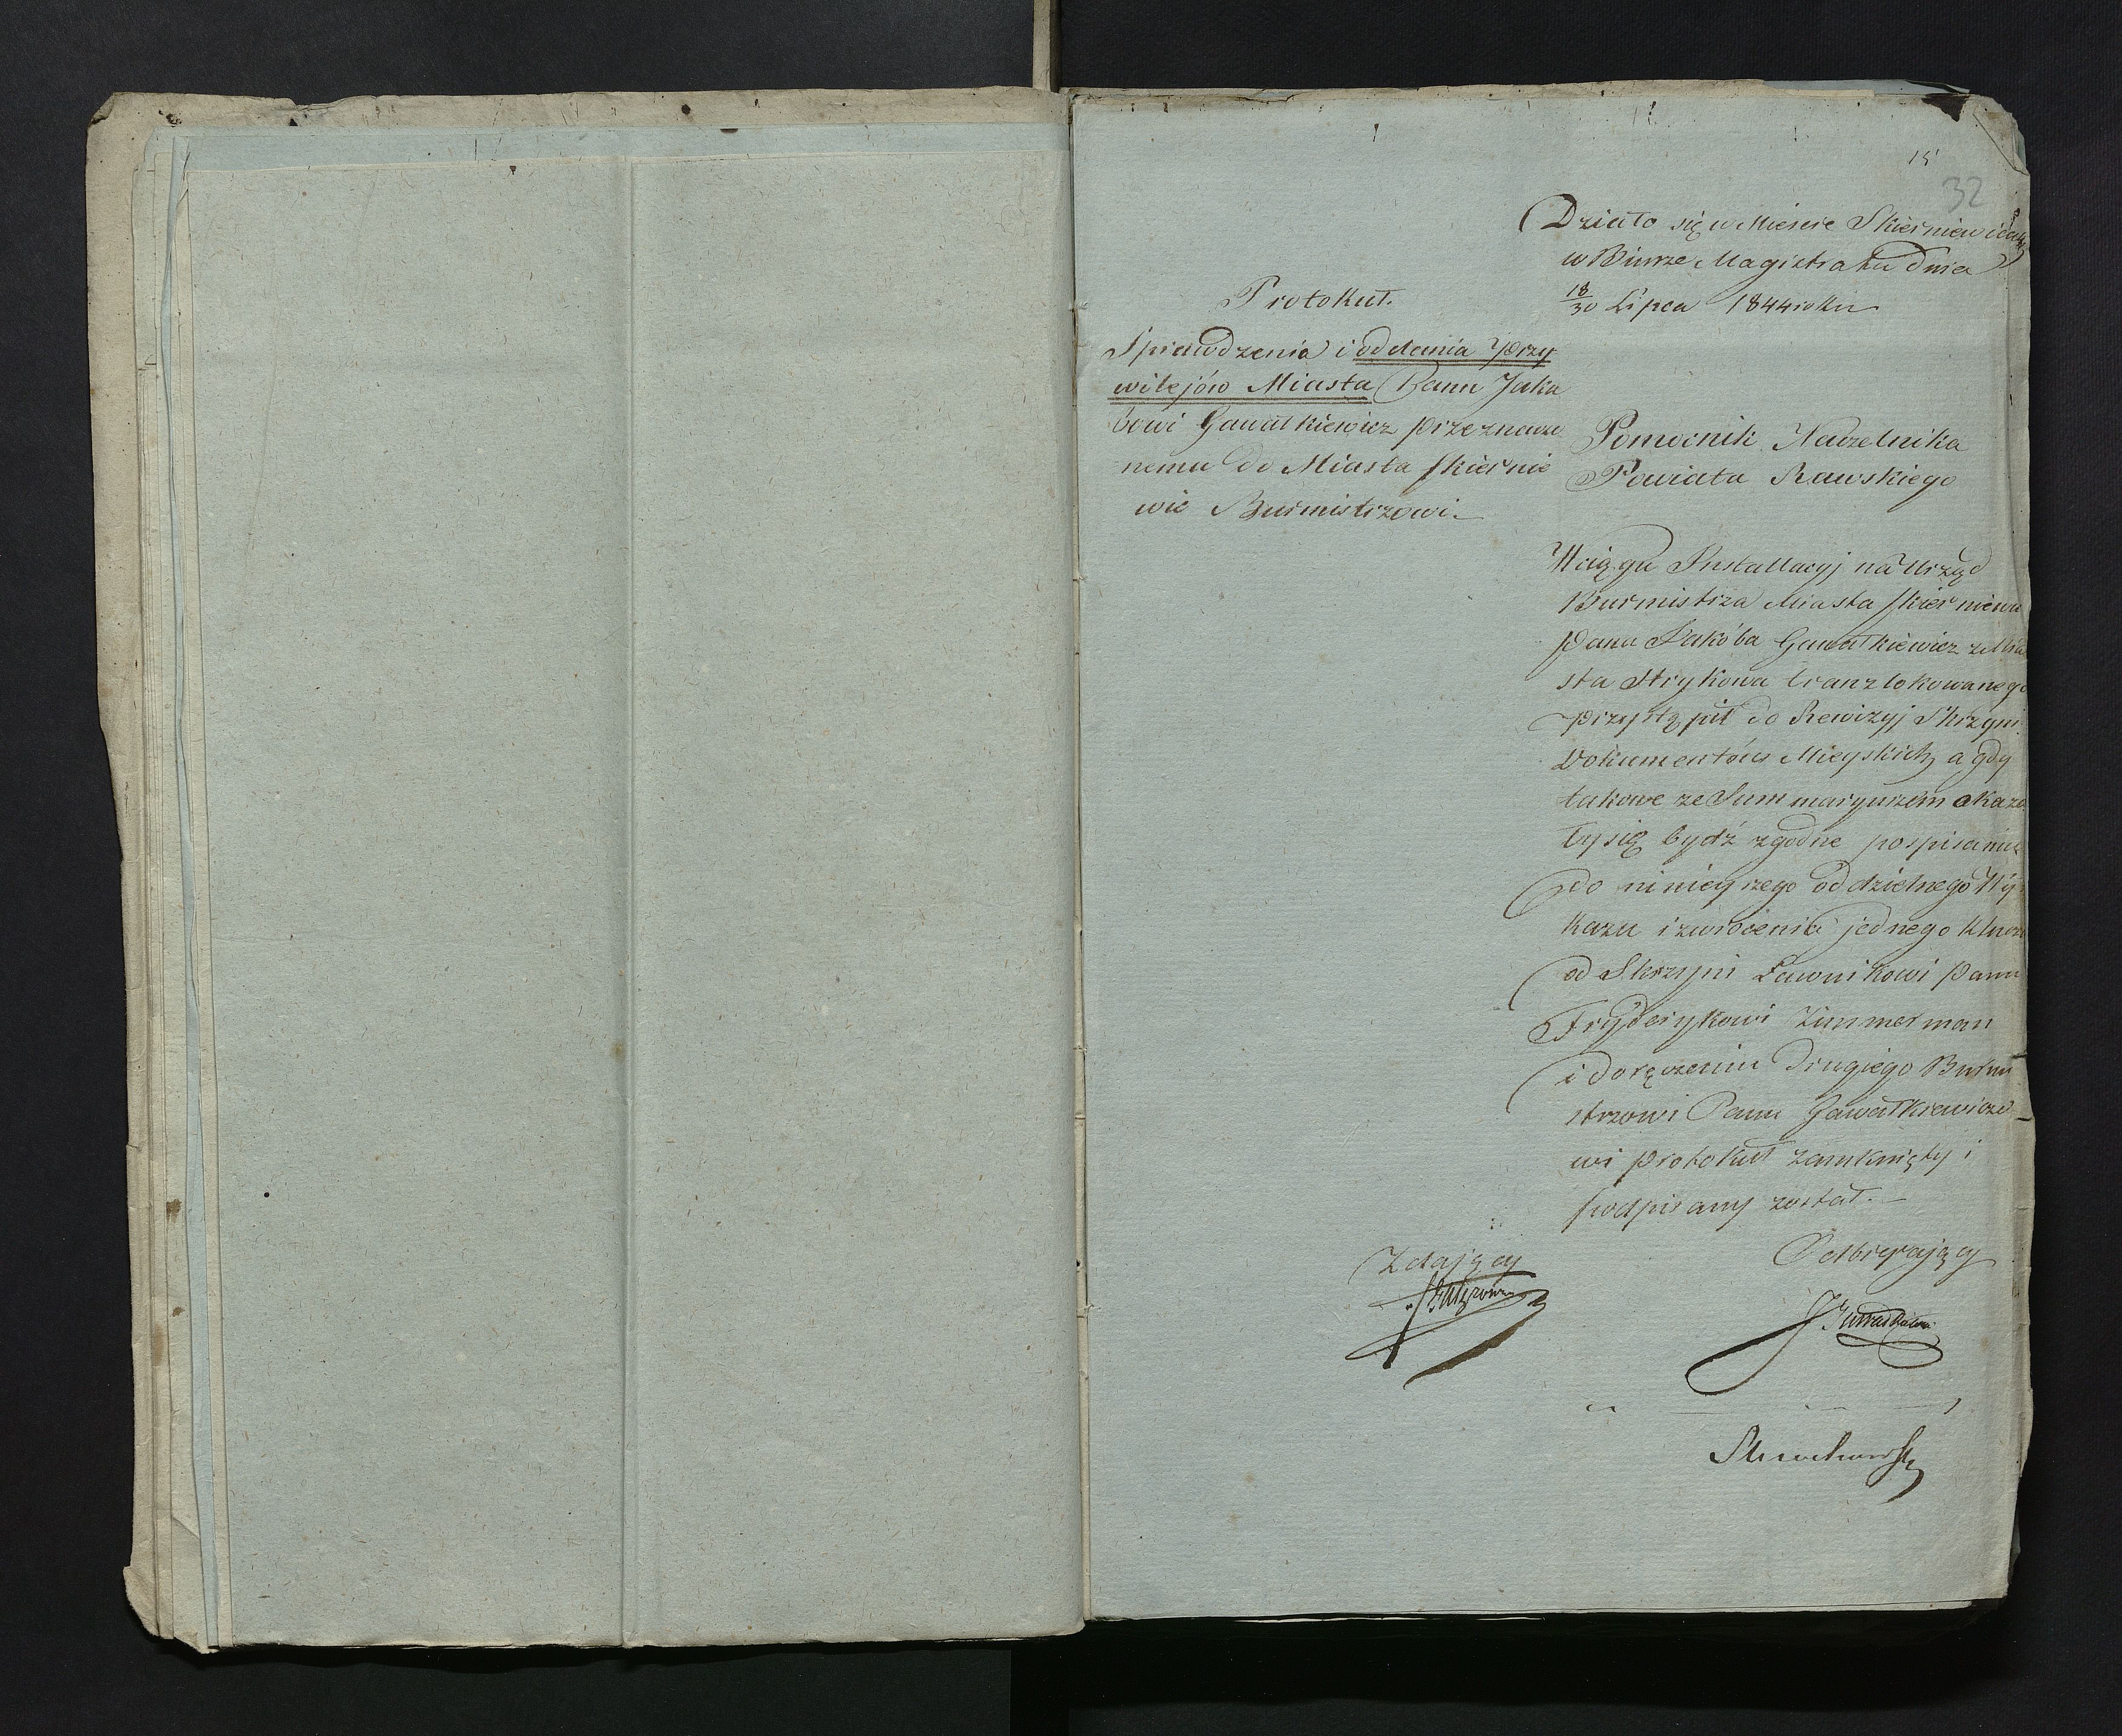 15
32
Działo się w Mieście Skierniewicach
w Biurze Magistratu dnia
18/30 Lipca 1844 roku
Protokuł.
Sprawdzenia i oddania Przy
wilejów Miasta Panu Jaku
bowi Gawałkiewicz przeznaczo
nemu do Miasta Skiernie
wic Burmistrzowi.
Pomocnik Naczelnika
Powiatu Rawskiego
W ciągu Installacyj na Urząd
Burmistrza Miasta Skierniewic
Pana Jakóba Gawałkiewicz z Mia
sta Strykowa tranzlokowanego
przystąpił do Rewizyj Skrzyni
Dokumentów Mieyskich, a gdy
takowe ze Summaryuszem okaza
ły się bydź zgodne po spisaniu
do ninieyszego oddzielnego Wy
kazu i zwróceniu jednego klucza
od Skrzyni Ławnikowi Panu
Fryderykowi Zimmerman
i doręczeniu drugiego Burmi
strzowi Panu Gawałkiewiczo
wi protokuł zamknięty i
podpisany został. —
Zdający
Odbierający